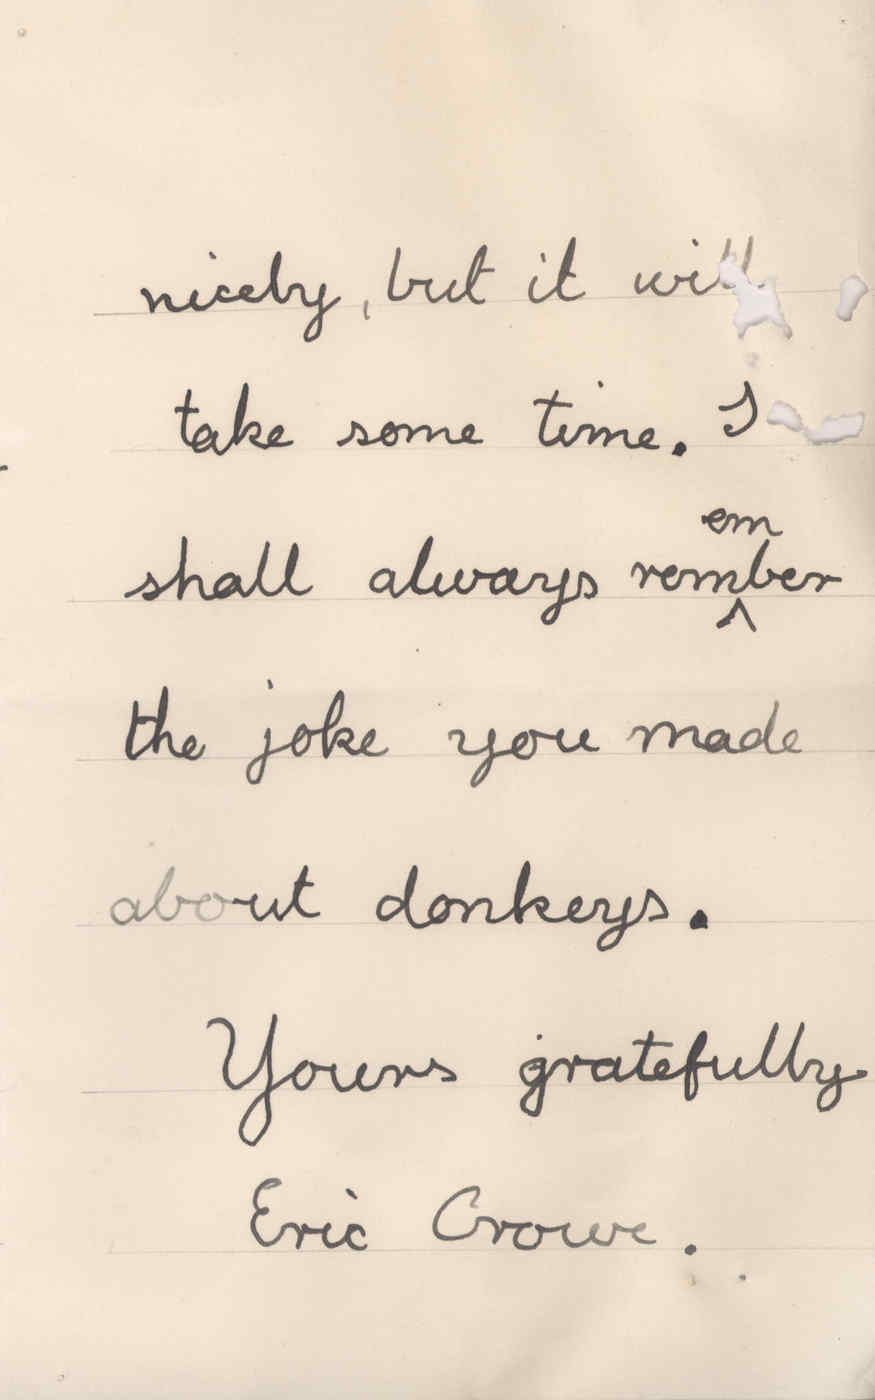 nicely, but it will
take some time. I
shall always remember
the joke you made
about donkeys.
Yours gratefully
Eric Crowe.